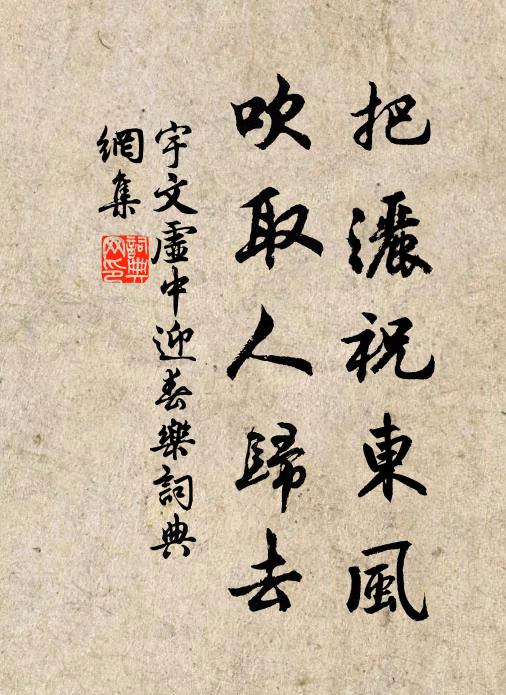 把灑祝東風
吹取人歸去
宇文虛中迎春樂詞典
網集
詞典网印